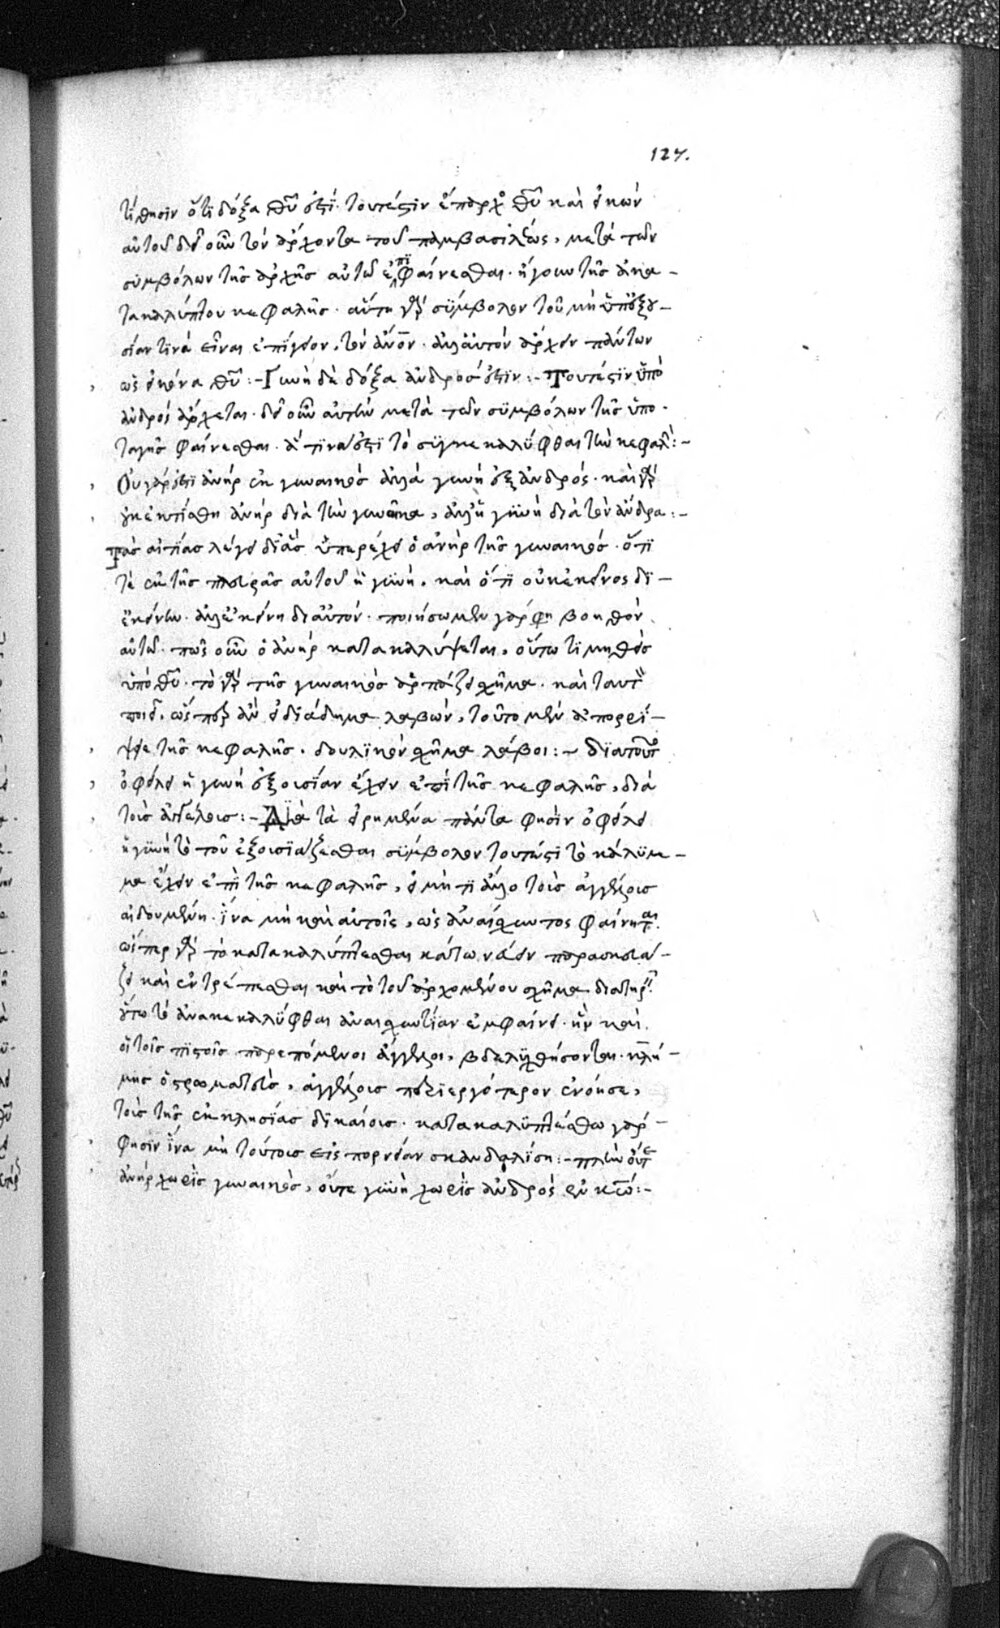 127.
τίθησιν ὅτι δόξα θῦ ἐστί· τουτέστιν ὕπαρχος θῦ καὶ εἰκὼν
αὐτοῦ δεῖ οὖν τὸν ἄρχοντα τοῦ παμβασιλέως, μετὰ τῶν
συμβόλων τῆς ἀρχῆς αὐτῶ ἐπιφαίνεσθαι· ἤγουν τῆς ἀκα-
τακαλύπτου κεφαλῆς· αὕτη γὰρ σύμβολον τοῦ μὴ ὑπ' ἐξου-
σίαν τινὰ εἶναι ἐπίγειον, τὸν ἄνον· ἀλλ' αὐτὸν ἄρχειν πάντων
ὡς εἰκόνα θῦ :- Γυνὴ δὲ δόξα ἀνδρός ἐστιν :- Τουτέστιν ὑπὸ
ἀνδρὸς ἄρχεται· δεῖ οὖν αὐτὴν μετὰ τῶν συμβόλων τῆς ὑπο-
ταγῆς φαίνεσθαι· ἅ τινα ἐστὶ τὸ συγκεκαλύφθαι τὴν κεφαλήν :-
Οὐ γάρ ἐστι ἀνὴρ ἐκ γυναικὸς ἀλλὰ γυνὴ ἐξ ἀνδρός· καὶ γὰρ
οὐκ ἐκτίσθη ἀνὴρ διὰ τὴν γυναῖκα, ἀλλ' ἡ γυνὴ διὰ τὸν ἄνδρα :-
Τὰς αἰτίας λέγει δι' ἃς ὑπερέχει ὁ ἀνὴρ τῆς γυναικός· ὅτι
τε ἐκ τῆς πλευρᾶς αὐτοῦ ἡ γυνή, καὶ ὅτι οὐκ ἐκεῖνος δι'
ἐκείνην· ἀλλ' ἐκείνη δι' αὐτόν· ποιήσωμεν γάρ φη βοηθὸν
αὐτῶ· πῶς οὖν ὁ ἀνὴρ κατακαλύψεται, οὕτω τιμηθεὶς
ὑπὸ θῦ· τὸ γὰρ τῆς γυναικὸς ἁρπάζει σχῆμα· καὶ ταυτὸν
ποιεῖ, ὥσπερ ἂν εἰ διάδημα λαβών, τοῦτο μὲν ἀπορρί-
ψει τῆς κεφαλῆς· δουλικὸν σχῆμα λάβοι :- διατοῦτο
ὀφείλει ἡ γυνὴ ἐξουσίαν ἔχειν ἐπὶ τῆς κεφαλῆς, διὰ
τοὺς ἀγγέλους :- Διὰ τὰ εἰρημένα πάντα φησὶν ὀφείλει
ἡ γυνὴ τὸ τοῦ ἐξουσιάζεσθαι σύμβολον τουτέστι τὸ κάλυμ-
μα ἔχειν ἐπὶ τῆς κεφαλῆς, εἰ μή τι ἄλλο τοὺς ἀγγέλους
αἰδουμένη· ἵνα μὴ καὶ αὐτοῖς, ὡς ἀναίσχυντος φαίνηται.
ὥσπερ γὰρ τὸ κατακαλύπτεσθαι κάτω νεύειν παρασκευά-
ζει καὶ ἐντρέπεσθαι καὶ τὸ τοῦ ἀρχομένου σχῆμα διατηρεῖν·
οὕτω τὸ ἀνακεκαλύφθαι ἀναισχυντίαν ἐμφαίνει· ἣν καὶ
οἱ τοῖς πιστοῖς παρεπόμενοι ἄγγελοι, βδελυχθήσονται· κλή-
μης ὁ στρωματεύς, ἀγγέλους περιεργότερον ἐνόησε,
τοὺς τῆς ἐκκλησίας δικαίους· κατακαλυπτέσθω γὰρ
φησὶν ἵνα μὴ τούτους εἰς πορνείαν σκανδαλίση :- πλὴν οὔτε
ἀνὴρ χωρὶς γυναικός, οὔτε γυνὴ χωρὶς ἀνδρὸς ἐν κῶ :-